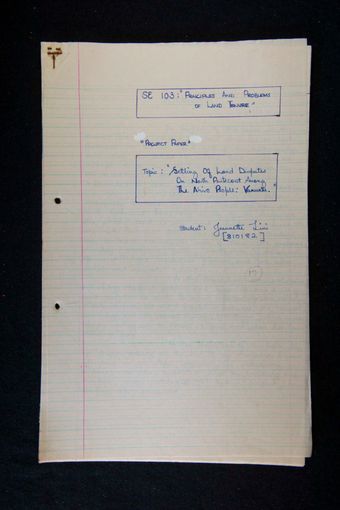 SE 103: "PRINCIPLES AND PROBLEMS
OF LAND TENURE"
"PROJECT PAPER"
Topic: "Settling Of Land Disputes
On North Pentecost Among
The People: Vanuatu."
Student: Jeannette Lini
[810182]